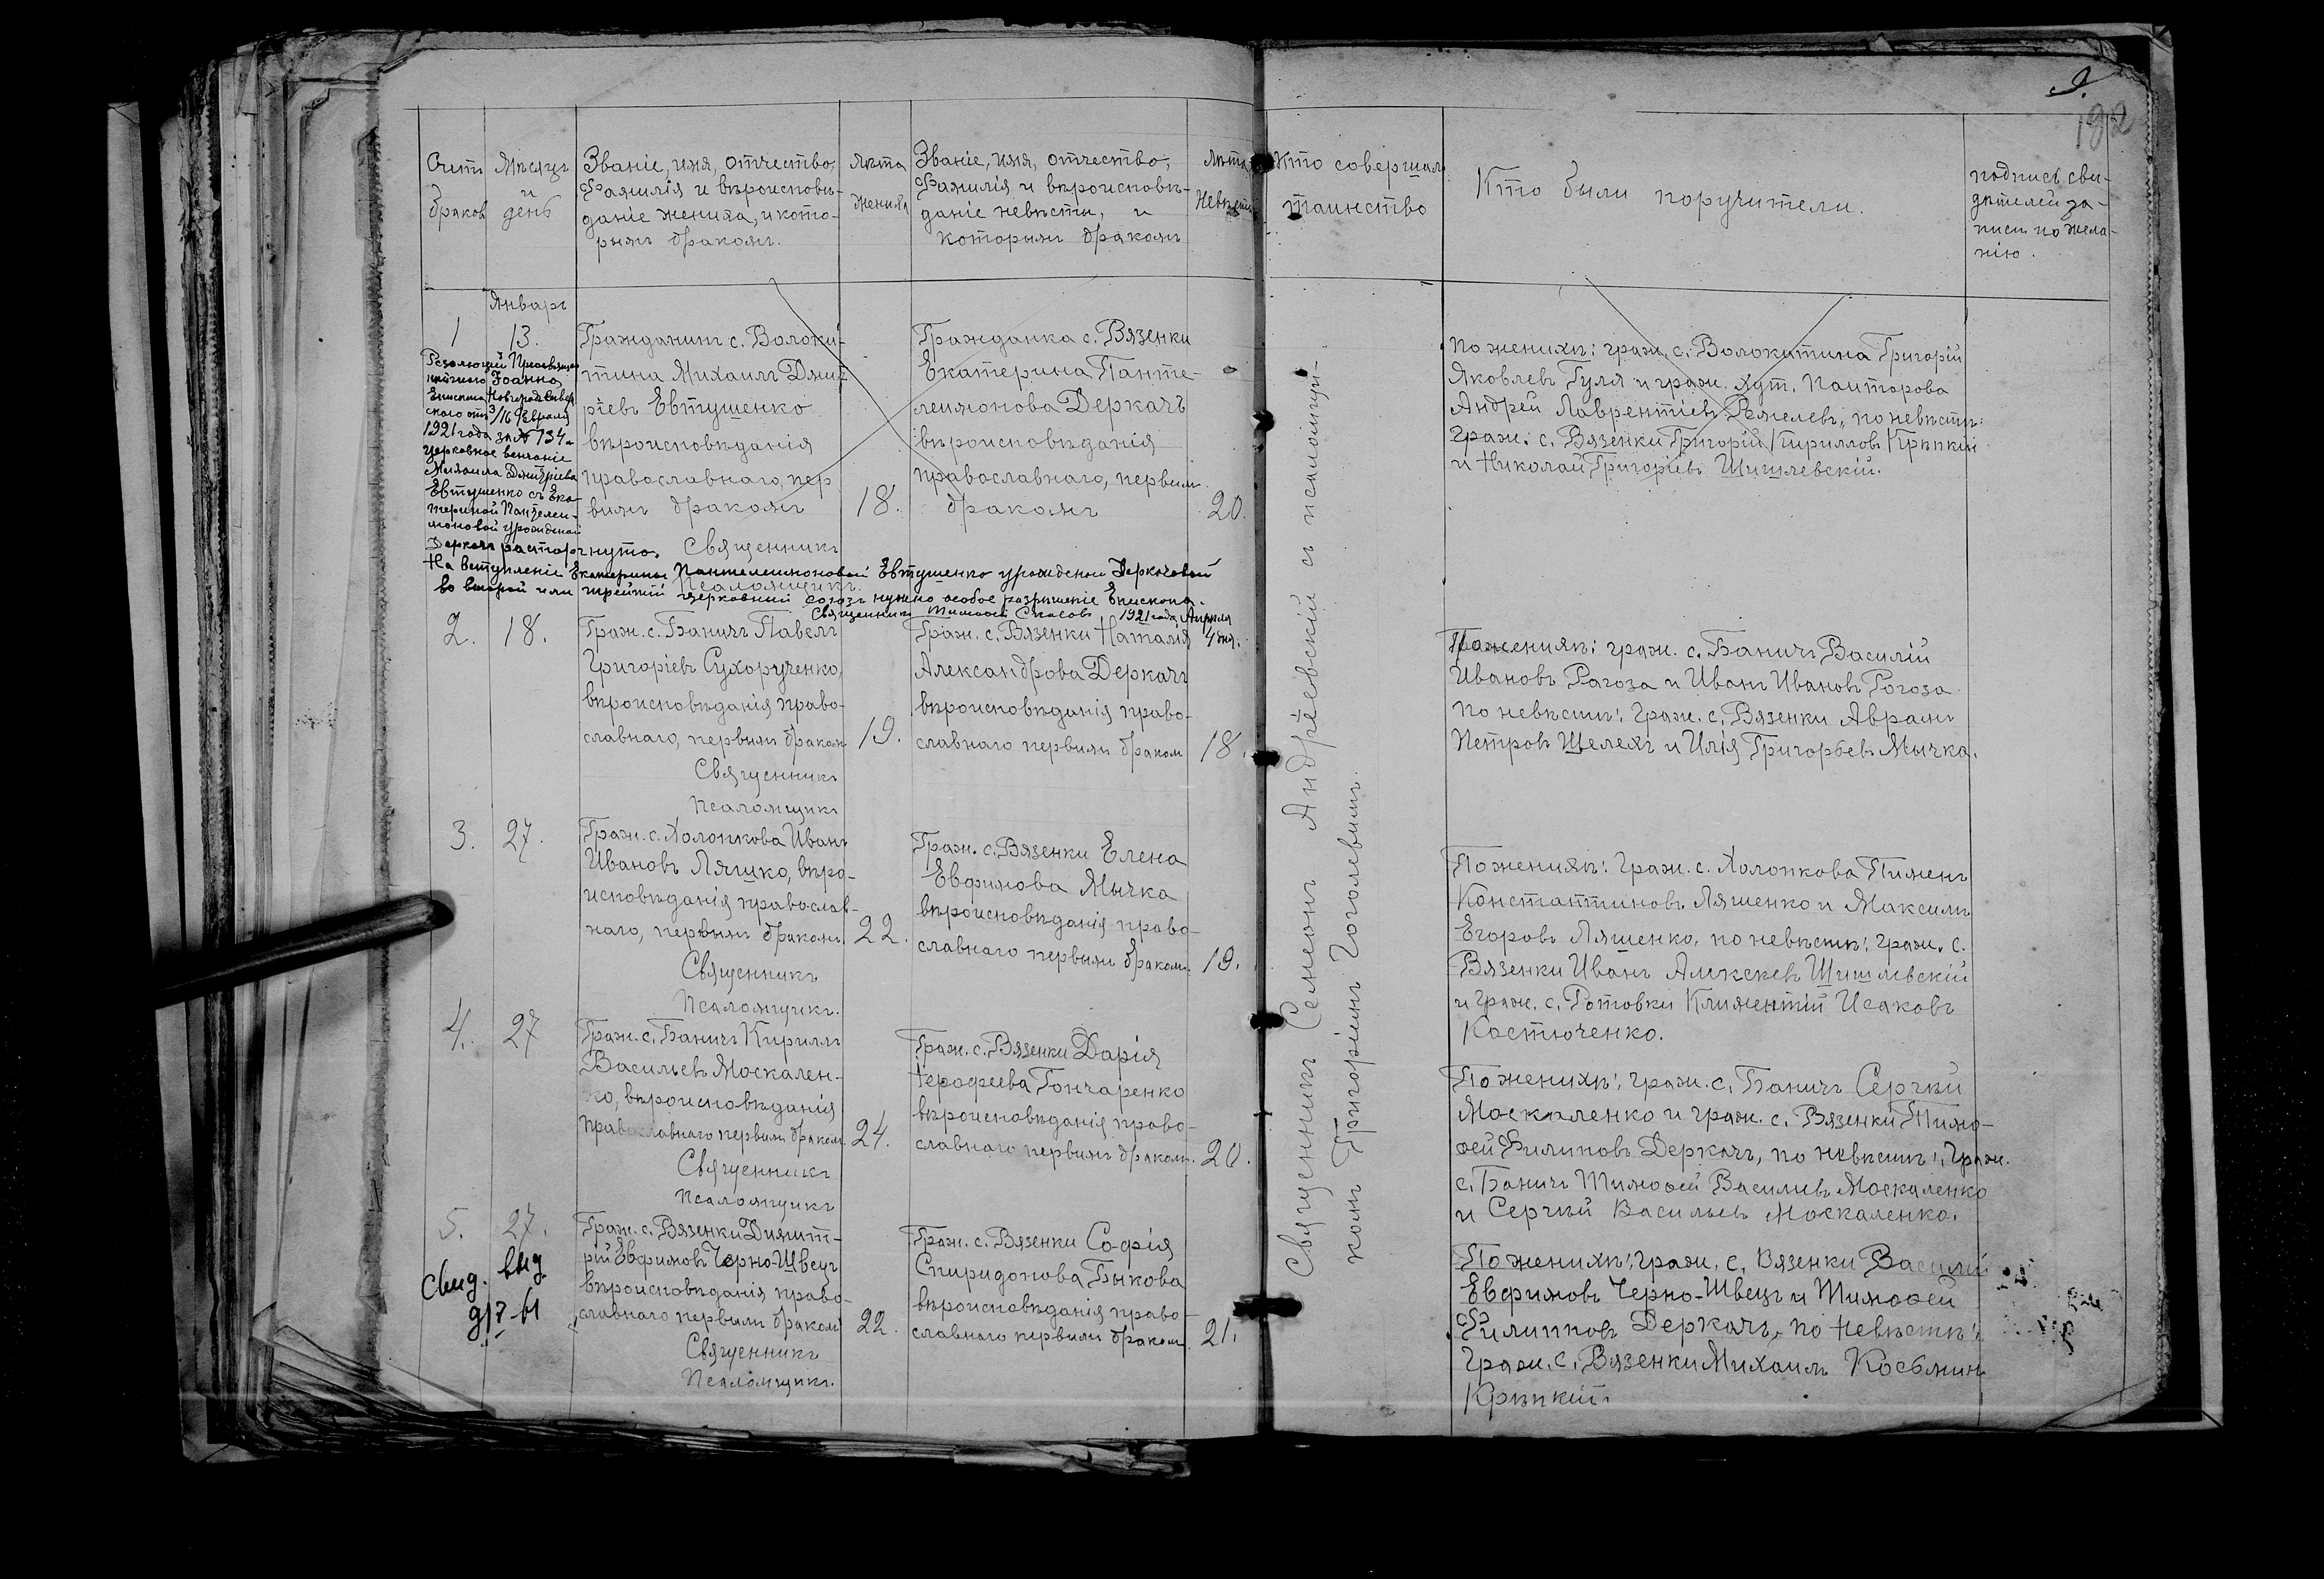 9.
192
Счетъ браковъ
Мѣсяцъ и день
Званіе, имя, отчество,
фамилія и вѣроисповѣ-
даніе жениха, и кото-
рымъ бракомъ.
Лѣта
жениха
Званіе, имя, отчество,
фамилія и вѣроисповѣ-
даніе невѣсты, и
которымъ бракомъ
Лѣта
Невѣсты
Кто совершалъ
таинство
Кто были поручители.
подпись сви-
дѣтелей за-
писи по жела-
нію.
Январь
1
13.
Гражданинъ с. Волоки-
тина Михаилъ Дмит-
ріевъ Евтушенко
вѣроисповѣданія
православнаго, пер
вымъ бракомъ
18.
Священникъ
Псаломщикъ
Гражданка с. Вязенки
Екатерина Панте-
леимонова Деркачъ
вѣроисповѣданія
православнаго, первым
бракомъ
20.
По женихѣ: граж. с. Волокитина Григорій
Яковлевъ Гуля и граж. хут.
Андрей Лаврентіевъ по невѣстѣ:
Граж. с. Вязенки Григорій Кирилловъ Крѣпкій
и Николай Григоріевъ Шишлевскій.
Резолюціей Преосвящен
нѣйшаго Іоанна,
Епископа Новгородсѣвер
скаго отъ 3/16 февраля
1921 года за № 734
церковное венчаніе
Михаила Дмитріева
Евтушенко съ Ека-
териной Пантелеи-
моновой урожденой
Деркачъ расторгнуто.
На вступленіе Екатерины Пантелеимоновой Евтушенко урожденой Деркачевой
во второй или третій церковный союзъ нужно особое разрѣшеніе Епископа.
Священникъ Тимофей Спасовъ 1921 года Апрѣля
4 дня.
2.
18.
Граж. с. Баничъ Павелъ
Григоріевъ Сухорученко,
вѣроисповѣданія право-
славнаго, первымъ бракомъ
19.
Священникъ
Псаломщикъ
Граж. с. Вязенки Наталія
Александрова Деркачъ
вѣроисповѣданія право-
славнаго первымъ браком
18.
По женихѣ: граж. с. Баничъ Василій
Ивановъ Рагоза и Иванъ Ивановъ Рогоза
по невѣстѣ: Граж. с. Вязенки Аврамъ
Петровъ Шелехъ и Илія Григорьевъ Мычка.
3.
27.
Граж. с. Холопкова Иванъ
Ивановъ Ляшко, вѣро-
исповѣданія православ-
наго, первымъ бракомъ.
22.
Священникъ
Псаломщикъ.
Граж. с. Вязенки Елена
Евфимова Мычка
вѣроисповѣданія право-
славнаго первымъ браком.
19.
По женихѣ: Граж. с. Холопкова Пименъ
Константиновъ Ляшенко и Максимъ
Егоровъ Ляшенко, по невѣстѣ: граж. с.
Вязенки Иванъ Алексеевъ Шишлевскій
и Граж. с. Ротовки Климентій Исаковъ
Костюченко.
4.
27
Граж. с. Баничъ Кириллъ
Васильевъ Москален-
ко, вѣроисповѣданія
православнаго первымъ браком.
24.
Священникъ
Псаломщикъ
Граж. с. Вязенки Дарія
Іерофеева Гончаренко
вѣроисповѣданія право-
славнаго первымъ браком.
20.
По женихѣ: граж. с. Баничъ Сергѣй
Москаленко и граж. с. Вязенки Тимо-
ѳей Филиповъ Деркачъ, по невѣстѣ: Граж.
с. Баничъ Тимоѳей Василіевъ Москаленко
и Сергѣй Васильевъ Москаленко.
5.
27.
Свид. выд
9/7-61
Граж. с. Вязенки Димит-
рій Евфимовъ Черно-Швецъ
вѣроисповѣданія право-
славнаго первымъ браком
22.
Священникъ
Псаломщикъ.
Граж. с. Вязенки Софія
Спиридонова Быкова
вѣроисповѣданія право-
славнаго первымъ браком.
21.
По женихѣ: граж. с. Вязенки Василій
Евфимовъ Черно-Швецъ и Тимоѳей
Филипповъ Деркачъ, по невѣстѣ:
Граж. с. Вязенки Михаилъ Космин
Крѣпкій.
Священникъ Семеонъ Андріевскій съ псаломщи-
комъ Григоріемъ Гоголевымъ.